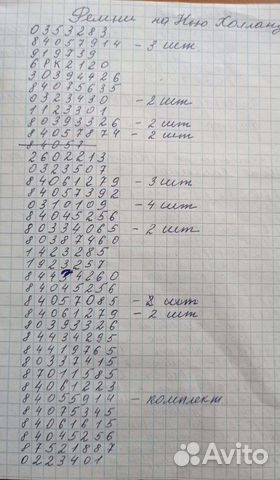 Ремни на Нью Холланд
0353283
84057914 - 3 шт
919789
6PK2120
30394426
84075635
0323430 - 2 шт
1123301
80393326 - 2 шт
84057874 - 2 шт
84057
2602213
0323507
84061279 - 3шт
84057392
0310109 - 4 шт
84045256
80334065 - 2 шт
80387460
1423285
1923257
84434260
84045256
84057085 - 2 шт
84061279 - 2 шт
80393326
84434295
84419765
80337415
87011585
84061223
84055914 - комплект
84075345
84061615
84045256
87521887
0223401
Avito